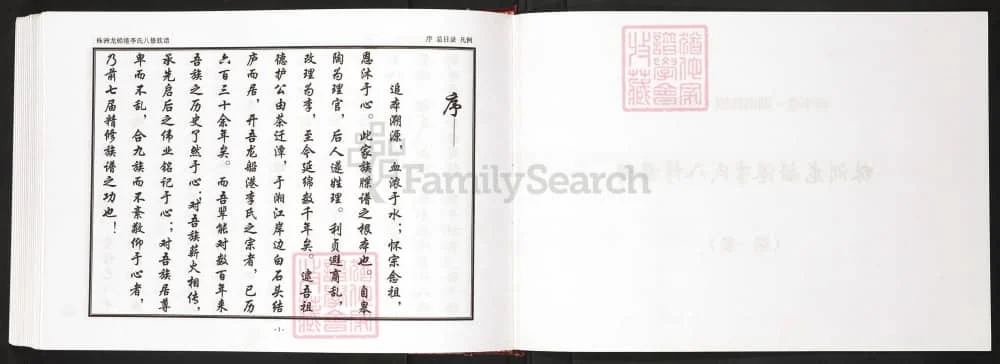 株洲龙船港李氏八修族谱
序 总目录 凡例
序一
追本溯源，血浓于水；怀宗念祖，
恩沐于心。此家族牒谱之根本也。自皋
陶为理官，后人遂姓理。利贞避商乱，
改理为李，至今延绵数千年矣。逮吾祖
德护公由茶迁潭，于湘江岸边白石头结
庐而居，开吾龙船港李氏之宗者，已历
六百三十余年矣。而吾辈能对数百年来
吾族之历史了然于心；对吾族薪火相传，
承先启后之伟业铭记于心；对吾族居尊
卑而不乱，合九族而不紊敬仰于心者，
乃前七届精修族谱之功也！
-1-
FamilySearch